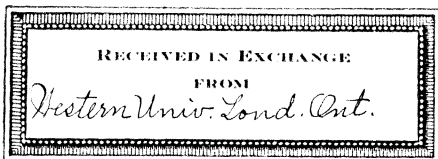 RECEIVED IN EXCHANGE
FROM
Western Univ. Lond. Ont.